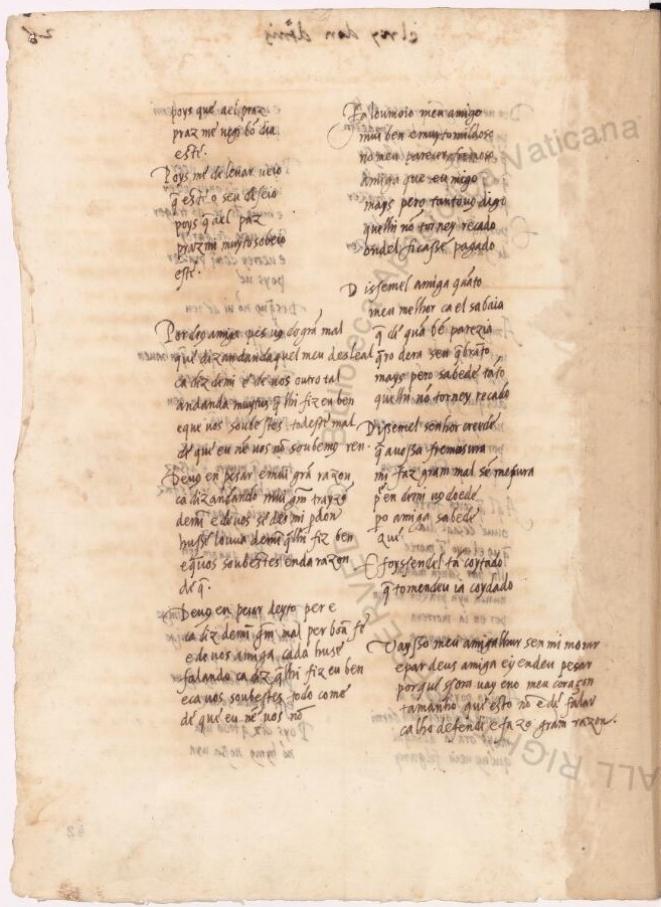 el rey don denis
poys que a el praz
praz me negi bō dia
est e.
Poys me de leuar ueio
q̄ est e o seu deseio
poys q̄ a el paz
praz mi muyto sobeio
est e.
Por deo amiga pes uꝯ do grā mal
que diz andand aquel meu desleal
ca diz demi e de uos outro tal
andand a muytus q̄ lhi fiz eu ben
e que uos soubestes tod este mal
de que eu nē uos nō soubemꝯ ren.
Deuꝯ en pesar e mui grā razon
ca diz andando mui grm̄ trayzō
demī e de uos se deꝯ mi pdon
hu sse louua demī q̄ lhi fiz ben
e q̄ uos soubestes end a razon
de q̄.
Deuꝯ en pesar deyto per e
ca diz demī grm̄ mal per bōa fe
e de uos amiga cada hu sse
falando ca diz q̄ lhi fiz eu ben
e ca uos soubestes todo como
de que eu nē uos nō
Falou m oio meu amigo
mui ben e muyt omildoso
no meu parecer fremoso
amiga que eu migo
mays pero tanto uꝯ digo
que lhi nō torney recado
ond el ficasse pagado
Dissem el amiga quāto
meu melhor ca el sabaia
q̄ de quā bē parezia
q̄ro dera seu q̄brāto
mays pero sabede tāto
que lhi nō torney recado
Dissem el senhor creede
q̄ a uossa fremosura
mi faz gram mal sē mesura
p̄ en demi uꝯ doede
po amiga sabede
que
E foyss end el tā coytado
q̄ tom end eu ia coydado
Vaysso meu amig alhur sen mi morar
e par deus amiga ey end eu pesar
por que ss ora uay eno meu coraçon
tamanho que esto nō e de falar
ca lho defendi e fazo gram razon.
ALL RIGH